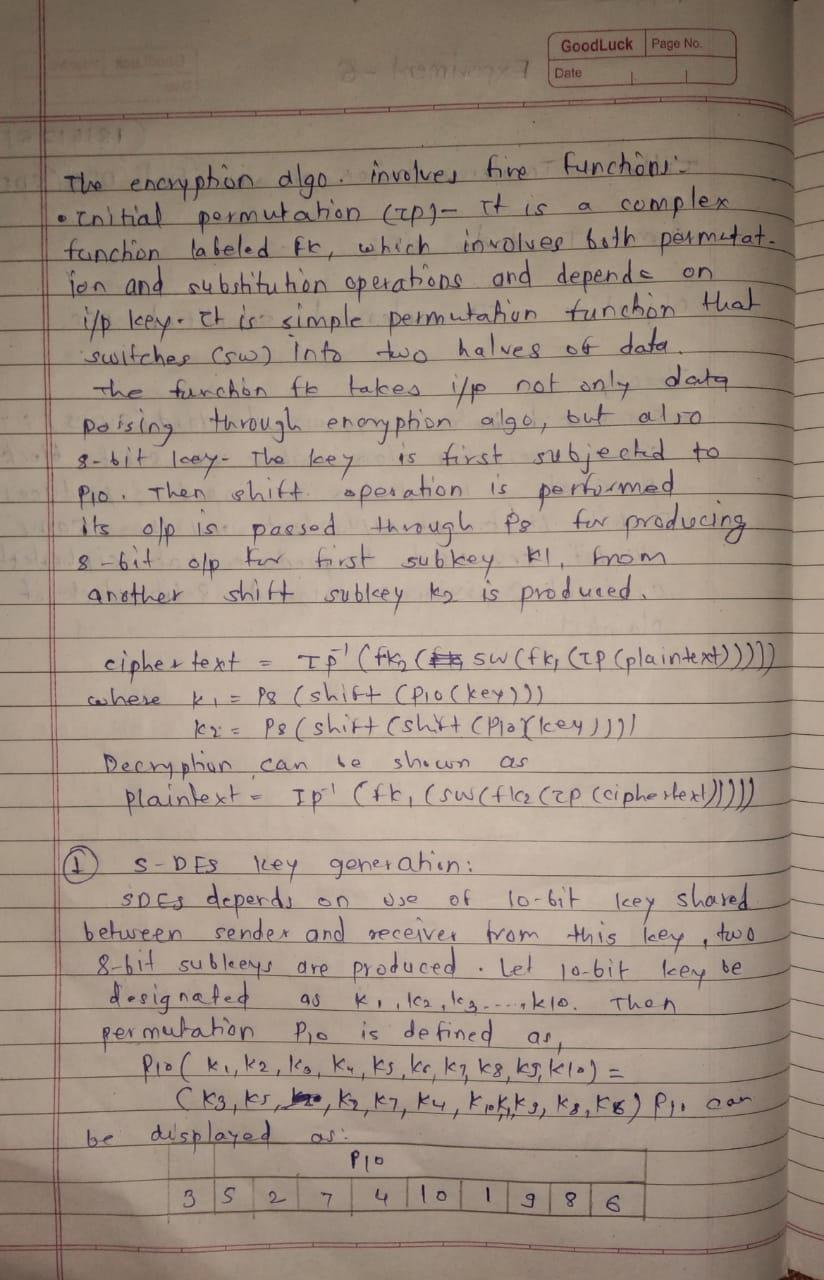 GoodLuck Page No.
Date
The encryption algo. involves five functions:-
• Initial permutation (IP)- It is a complex
function labeled fk, which involves both permutat-
ion and substitution operations and depends on
i/p key. It is simple permutation function that
switches (sw) into two halves of data.
The function fk takes i/p not only data
passing through encryption algo, but also
8-bit key- The key is first subjected to
P10. Then shift operation is performed
its o/p is passed through P8 for producing
8-bit o/p for first subkey k1, from
another shift subkey k2 is produced.
ciphertext = IP⁻¹ (fk2 (sw (fk1 (IP (plaintext)))))
where k1 = P8 (shift (P10 (key)))
k2 = P8 (shift (shift (P10 (key))))
Decryption can be shown as
plaintext = IP⁻¹ (fk1 (sw (fk2 (IP (ciphertext)))))
① S-DES key generation:
SDES depends on use of 10-bit key shared
between sender and receiver from this key, two
8-bit subkeys are produced. Let 10-bit key be
designated as k1, k2, k3....,k10. Then
permutation P10 is defined as,
P10 ( k1, k2, k3, k4, k5, k6, k7, k8, k9, k10) =
(k3, k5, k2, k7, k4, k10, k1, k9, k8, k6) P10 can
be displayed as:
P10
3 5 2 7 4 10 1 9 8 6